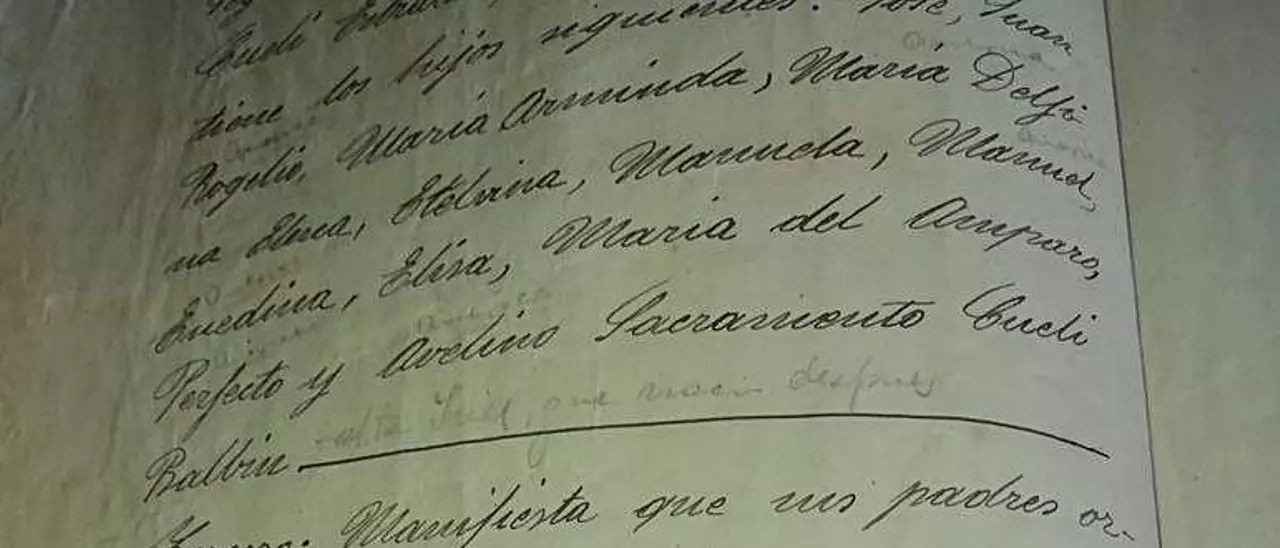 Cueli
tiene los hijos siguientes: José, Juan
Rogelio, María Arminda, María Delfi-
na Elena, Etelvina, Manuela, Manuel,
Enedina, Elisa, María del Amparo,
Perfecto y Avelino Sacramento Cueli
falta que nació después
Balbin
Manifiesta que sus padres or-